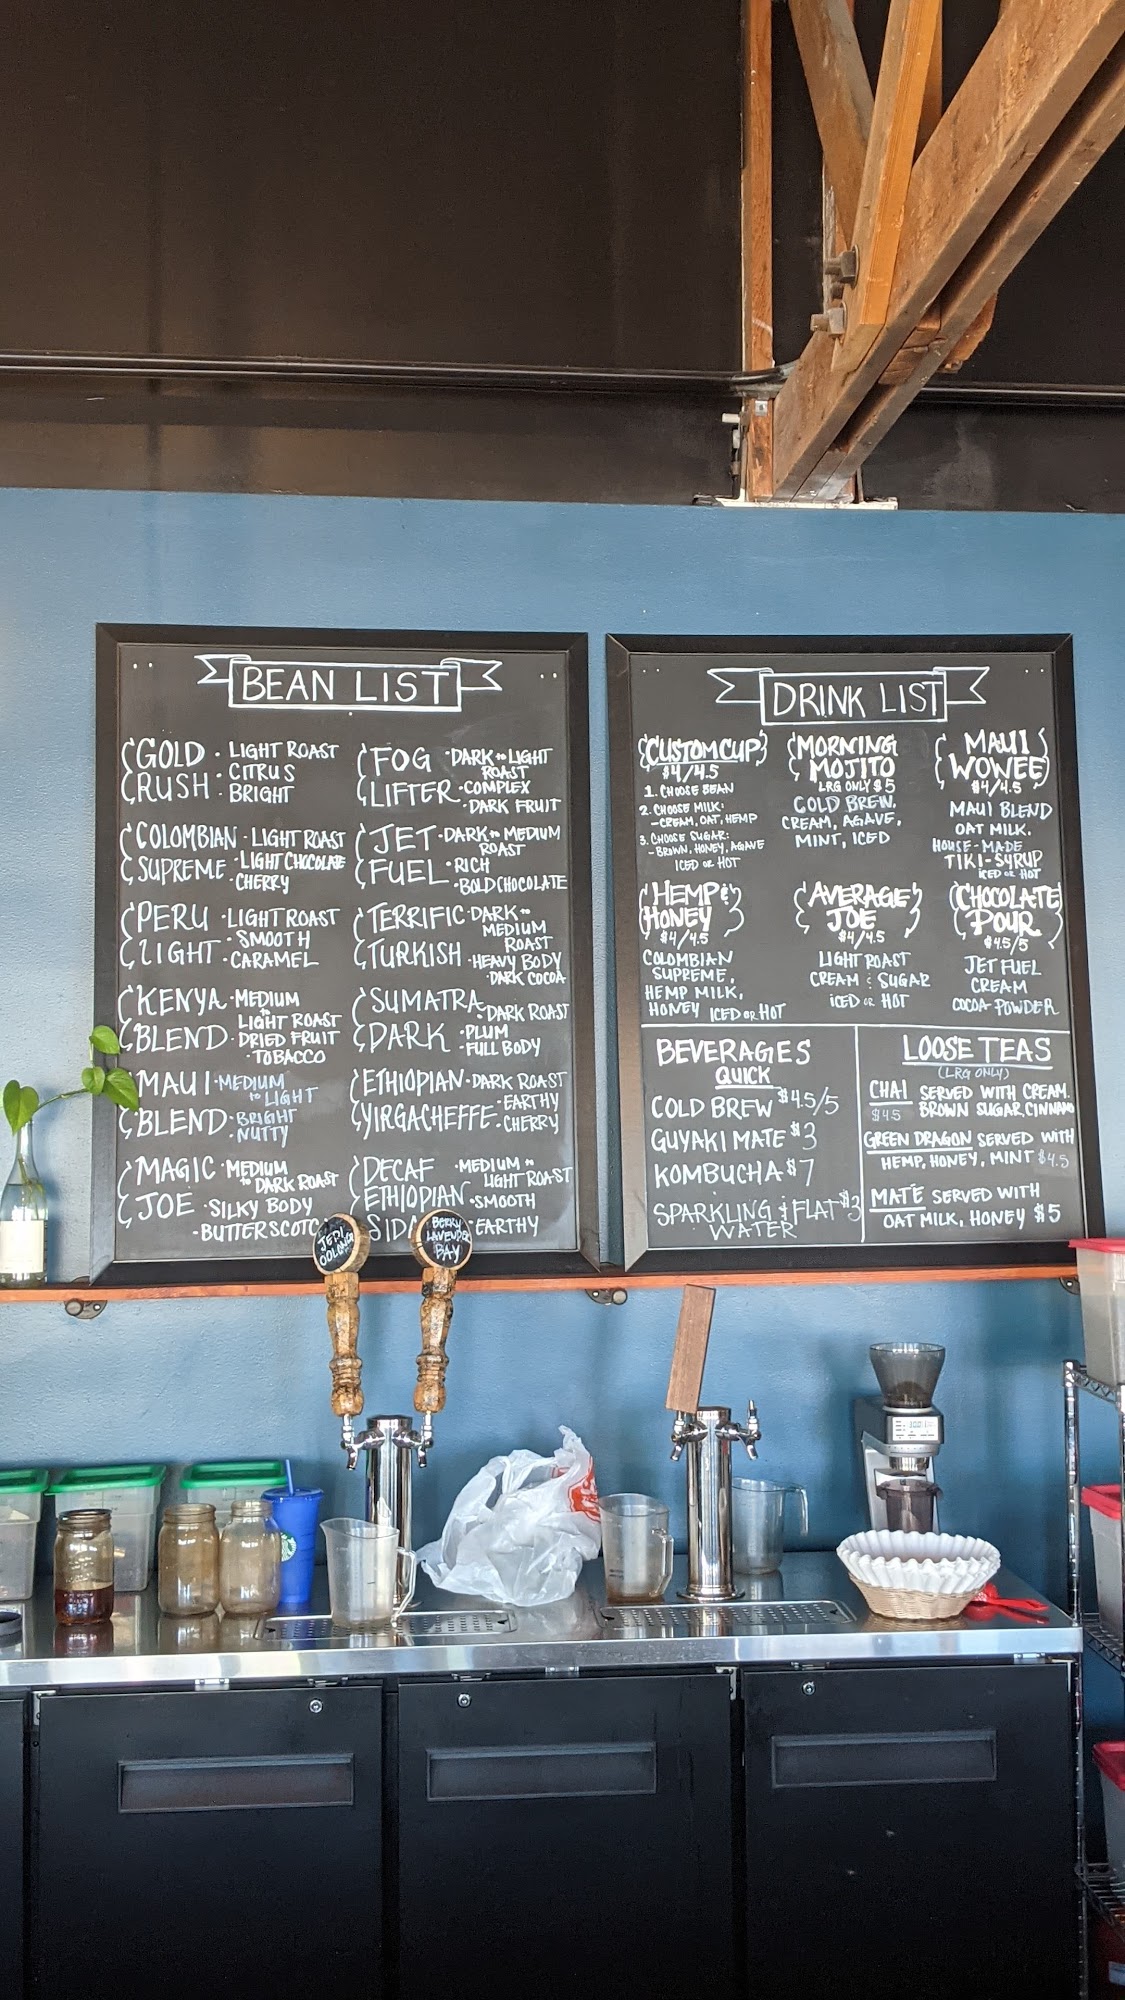 BEAN LIST
GOLD RUSH
· LIGHT ROAST
· CITRUS
· BRIGHT
COLOMBIAN SUPREME
· LIGHT ROAST
· LIGHT CHOCOLATE
· CHERRY
PERU LIGHT
· LIGHT ROAST
· SMOOTH
· CARAMEL
KENYA BLEND
· MEDIUM
to
LIGHT ROAST
· DRIED FRUIT
· TOBACCO
MAUI BLEND
· MEDIUM
to LIGHT
· BRIGHT
· NUTTY
MAGIC JOE
· MEDIUM
to DARK ROAST
· SILKY BODY
· BUTTERSCOTC
FOG LIFTER
· DARK to LIGHT
ROAST
· COMPLEX
· DARK FRUIT
JET FUEL
· DARK to MEDIUM
ROAST
· RICH
· BOLD CHOCOLATE
TERRIFIC TURKISH
· DARK to
MEDIUM
ROAST
· HEAVY BODY
· DARK COCOA
SUMATRA DARK
· DARK ROAST
· PLUM
· FULL BODY
ETHIOPIAN YIRGACHEFFE
· DARK ROAST
· EARTHY
· CHERRY
DECAF ETHIOPIAN SIDA
· MEDIUM to
LIGHT ROAST
· SMOOTH
· EARTHY
DRINK LIST
CUSTOM CUP
$4/4.5
1. CHOOSE BEAN
2. CHOOSE MILK:
- CREAM, OAT, HEMP
3. CHOOSE SUGAR:
- BROWN, HONEY, AGAVE
ICED or HOT
MORNING
MOJITO
LRG ONLY $5
COLD BREW,
CREAM, AGAVE,
MINT, ICED
MAUI
WOWEE
$4/4.5
MAUI BLEND
OAT MILK,
HOUSE-MADE
TIKI-SYRUP
ICED or HOT
HEMP &
HONEY
$4/4.5
COLOMBIAN
SUPREME,
HEMP MILK,
HONEY ICED or HOT
AVERAGE
JOE
$4/4.5
LIGHT ROAST
CREAM & SUGAR
ICED or HOT
CHOCOLATE
POUR
$4.5/5
JET FUEL
CREAM
COCOA-POWDER
BEVERAGES
QUICK
COLD BREW $4.5/5
GUYAKI MATE $3
KOMBUCHA $7
SPARKLING & FLAT $3
WATER
LOOSE TEAS
(LRG ONLY)
CHAI SERVED WITH CREAM,
$4.5 BROWN SUGAR, CINNAMO
GREEN DRAGON SERVED WITH
HEMP, HONEY, MINT $4.5
MATE SERVED WITH
OAT MILK, HONEY $5
JEDI
OOLONG
BERRY
LAVENDER
BAY